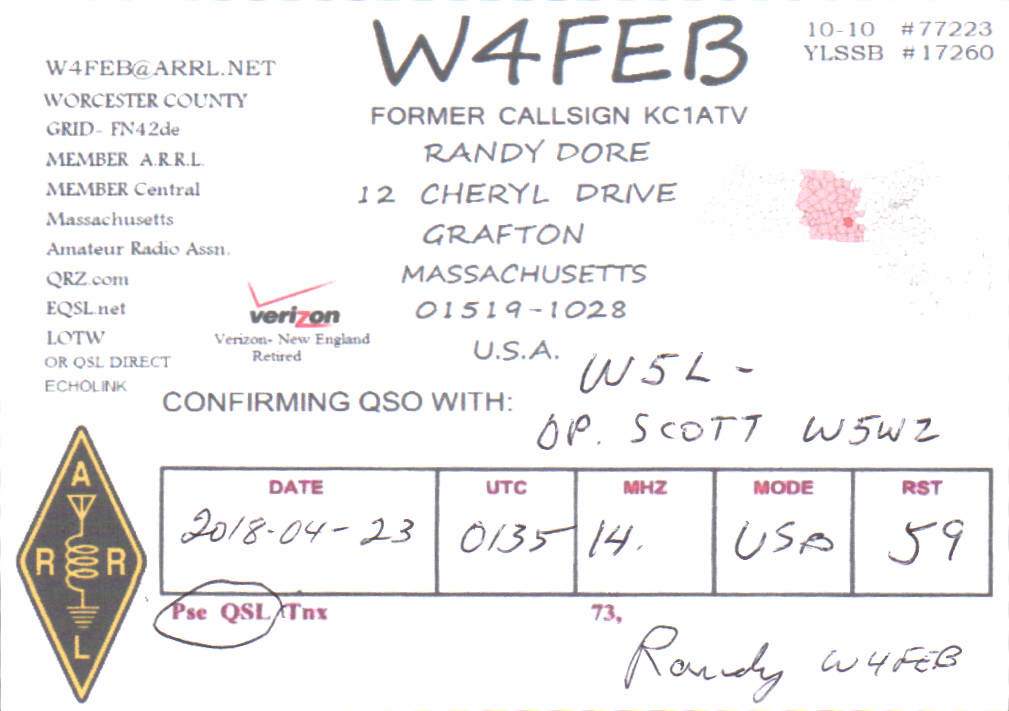 W4FEB
10-10 #77223
YLSSB #17260
W4FEB@ARRL.NET
WORCESTER COUNTY
GRID- FN42de
MEMBER A.R.R.L.
MEMBER Central
Massachusetts
Amateur Radio Assn.
QRZ.com
EQSL.net
LOTW
OR QSL DIRECT
ECHOLINK
FORMER CALLSIGN KC1ATV
RANDY DORE
12 CHERYL DRIVE
GRAFTON
MASSACHUSETTS
01519-1028
U.S.A.
verizon
Verizon- New England
Retired
CONFIRMING QSO WITH:
W5L -
OP. SCOTT W5WZ
A
R R
L
DATE UTC MHZ MODE RST
2018-04-23 0135 14. USB 59
Pse QSL Tnx 73,
Randy W4FEB